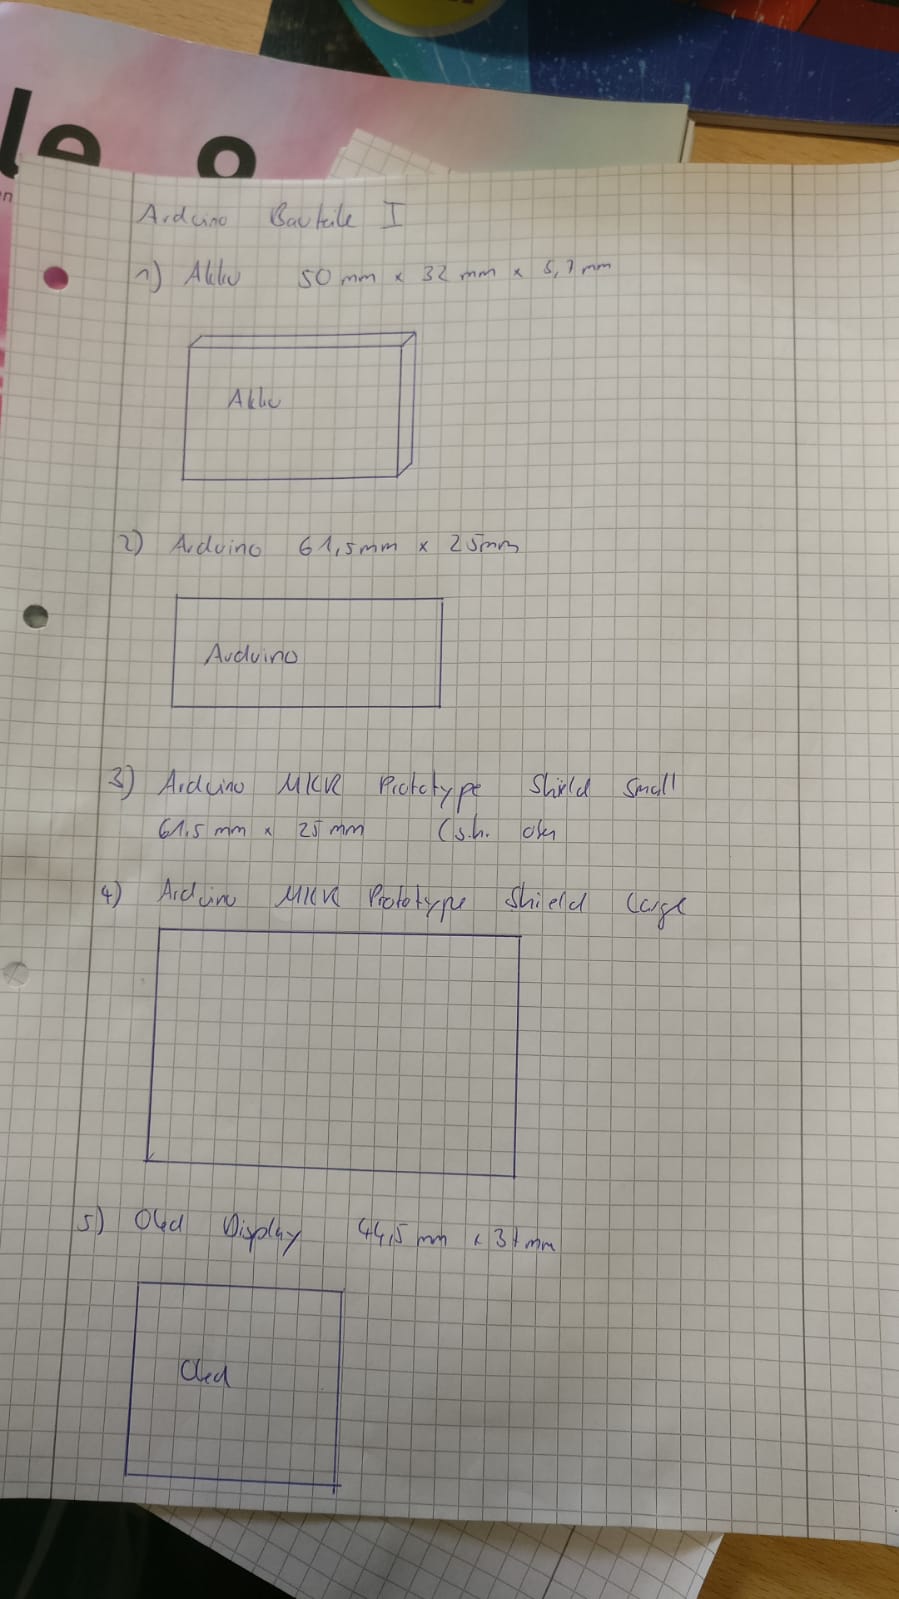 le o
en
Arduino Bauteile I
1) Akku 50 mm x 32 mm x 5,7 mm
Akku
2) Arduino 61,5mm x 25mm
Arduino
3) Arduino MKR Prototype Shield Small
61.5 mm x 25 mm (s.h. oben
4) Arduino MKR Prototype Shield Large
5) Oled Display 44,5 mm x 37 mm
Oled